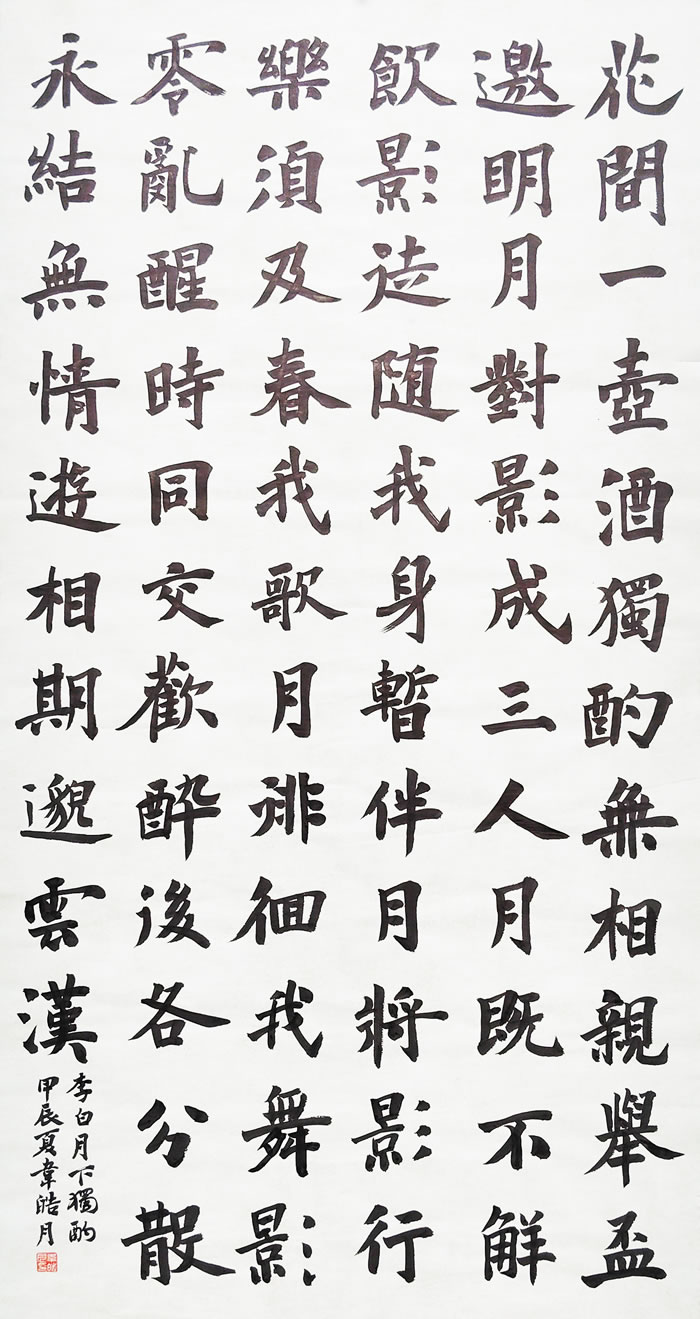 花間一壺酒獨酌無相親舉盃
邀明月對影成三人月既不解
飲影徒隨我身暫伴月將影行
樂須及春我歌月徘徊我舞影
零亂醒時同交歡醉後各分散
永結無情遊相期邈雲漢
李白月下獨酌
甲辰夏韋皓月